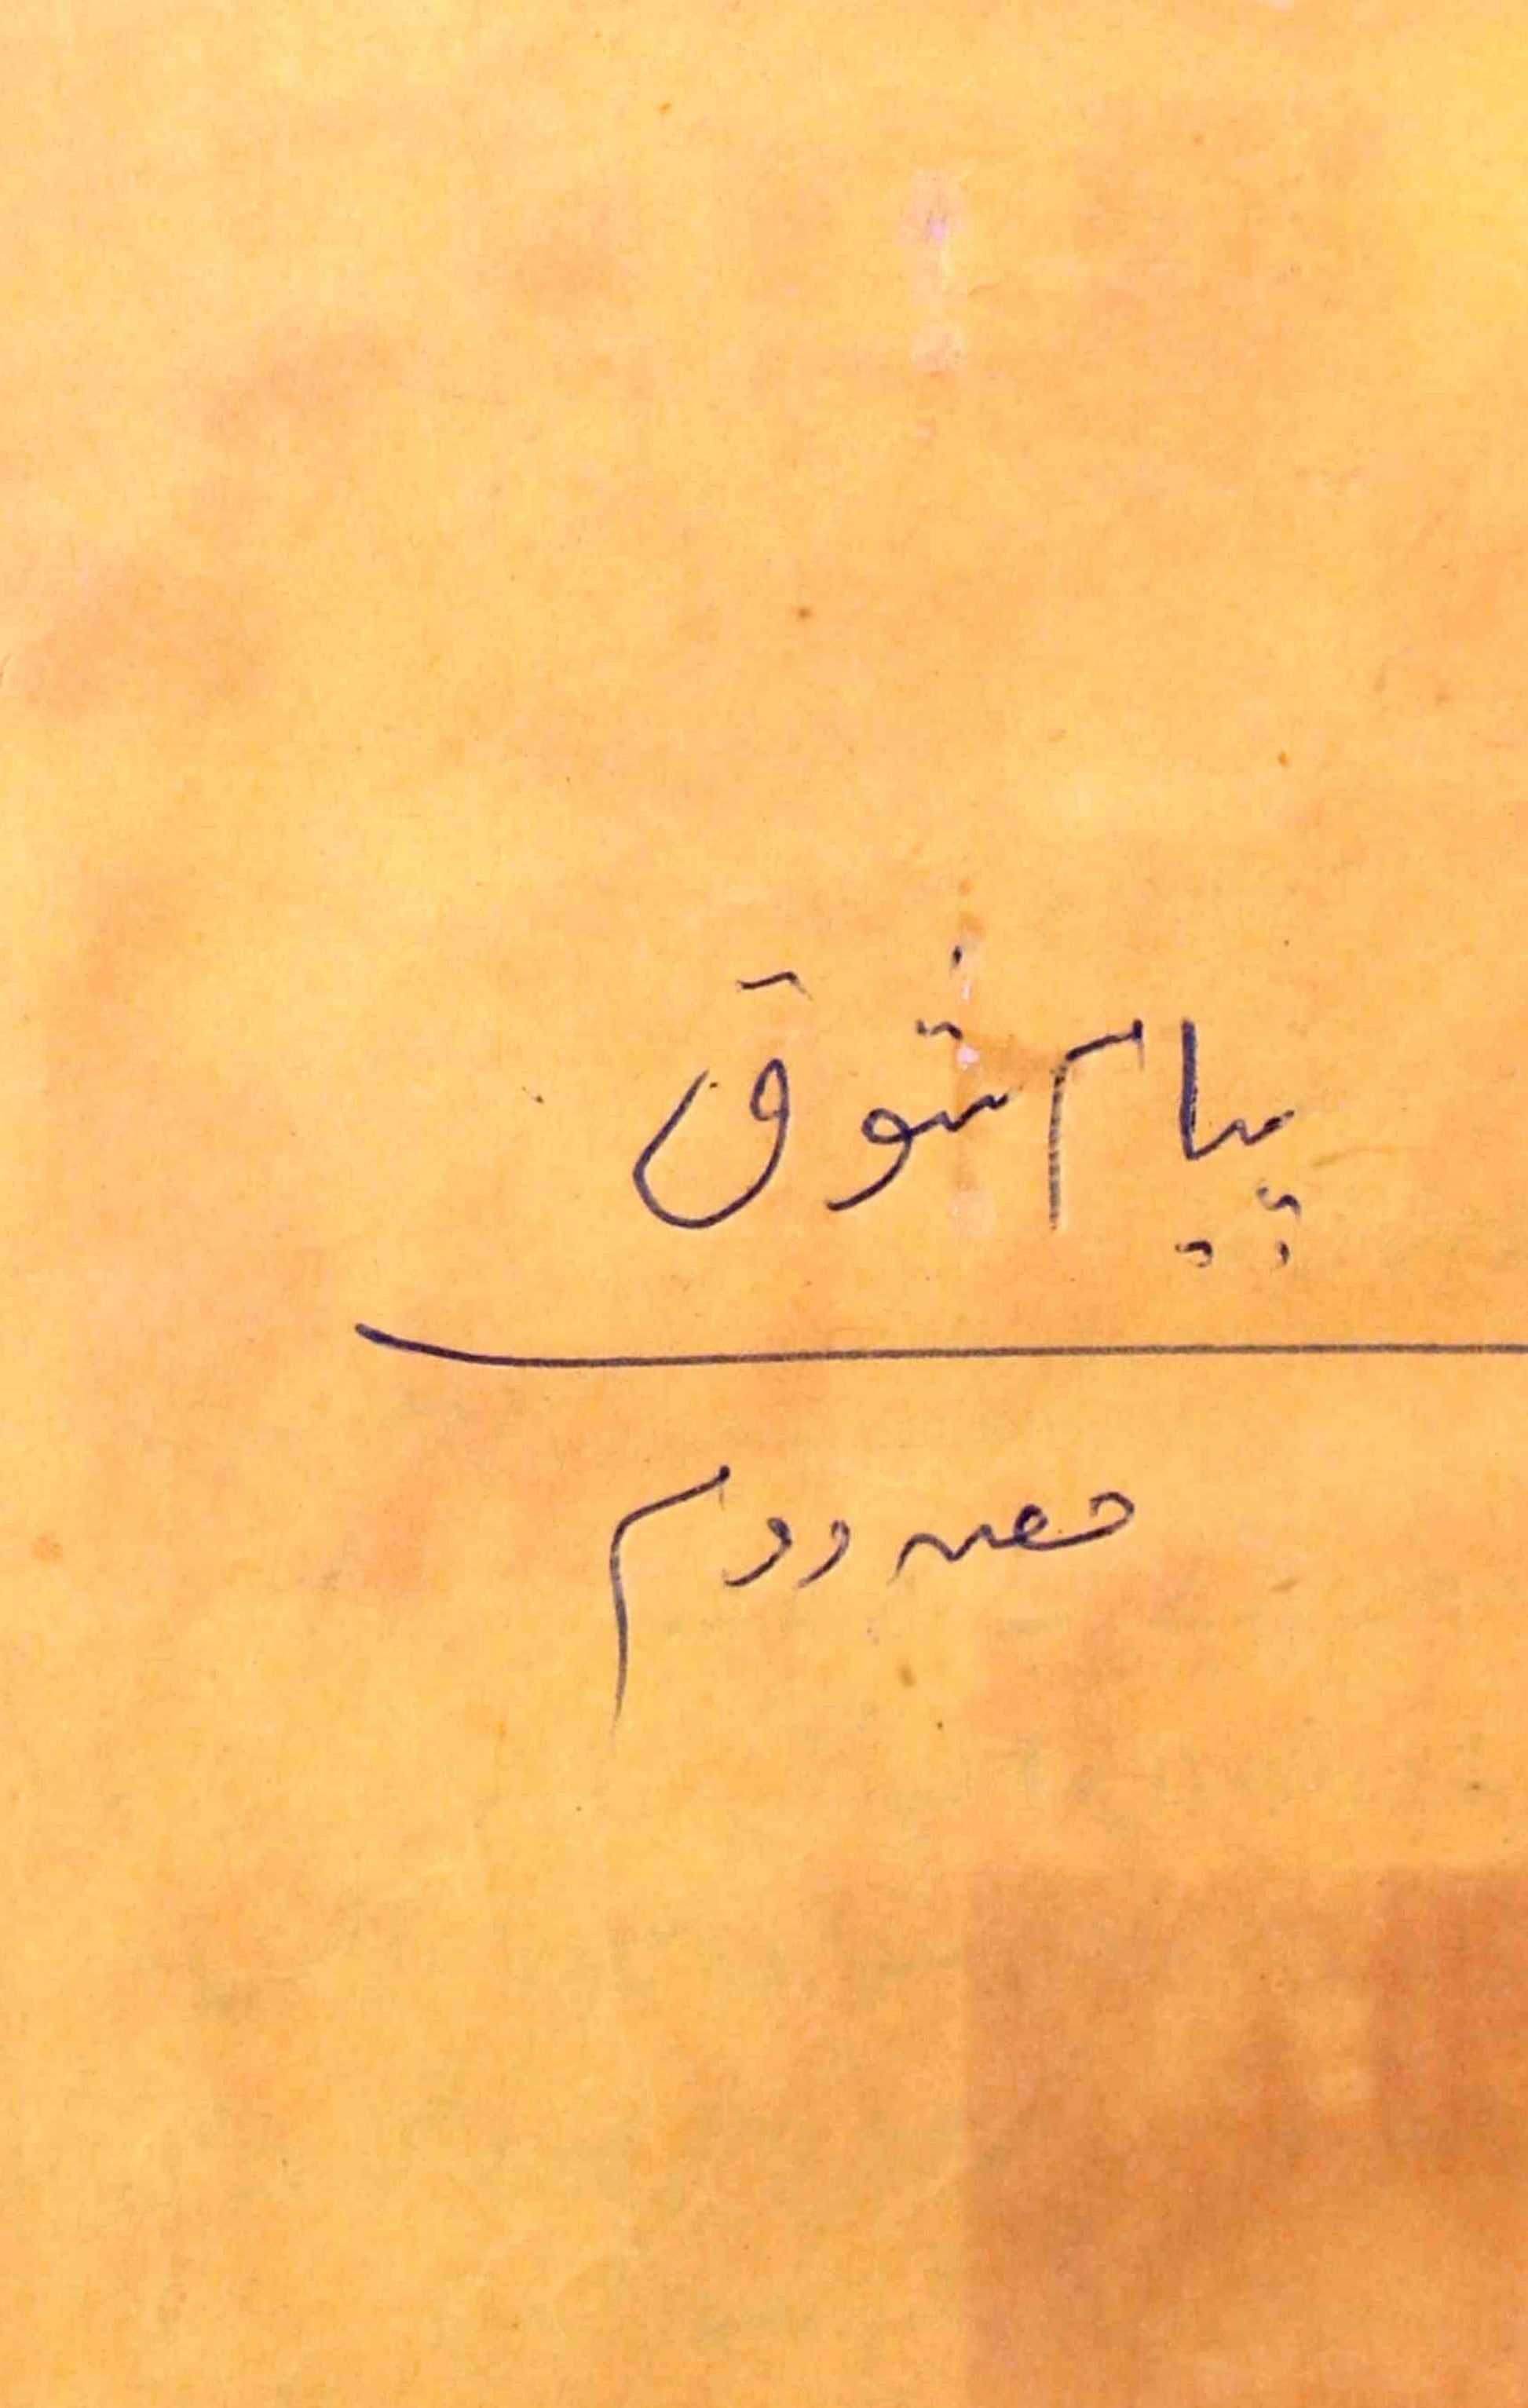 پیام شوق
حصہ دوم